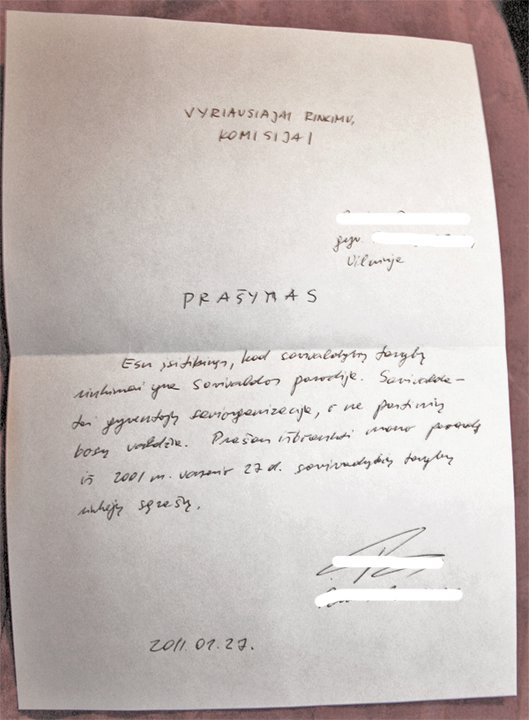 VYRIAUSIAJAI RINKIMŲ
KOMISIJAI
gyv.
Vilniuje
PRAŠYMAS
Esu įsitikinęs, kad savivaldybių tarybų
rinkimai yra savivaldos parodija. Savivalda –
tai gyventojų saviorganizacija, o ne partinių
bosų valdžia. Prašau išbraukti mano pavardę
iš 2001 m. vasario 27 d. savivadybių tarybų
rinkėjų sąrašų.
2011.01.27.